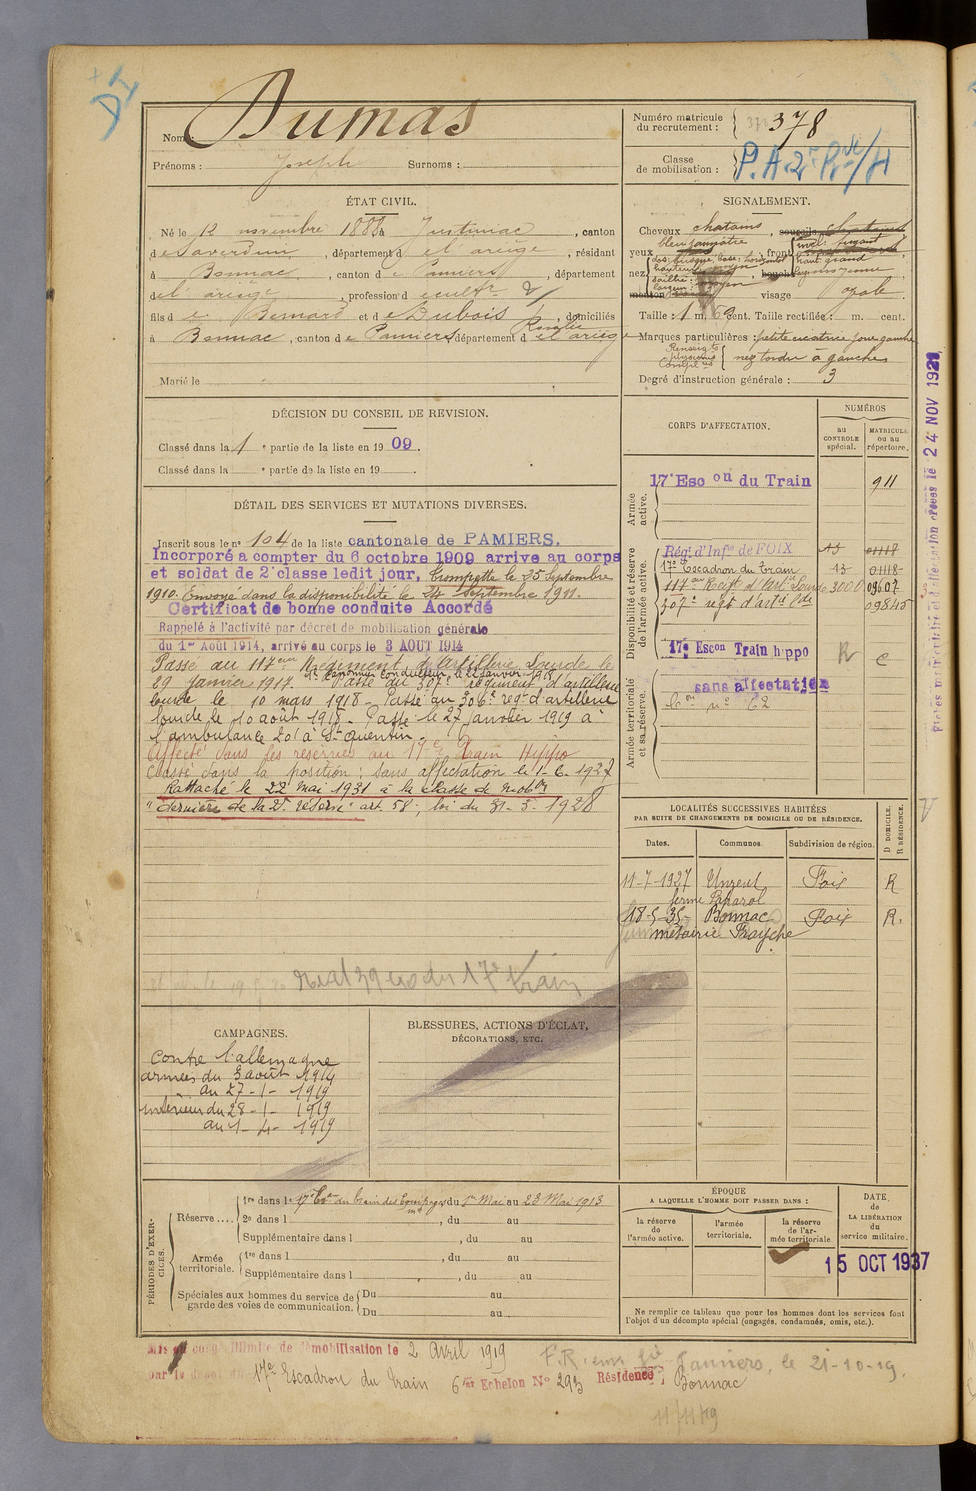 DI
Nom : Dumas
Prénoms : Joseph Surnoms :
Numéro matricule
du recrutement : 378
Classe
de mobilisation : P.A 2e Rve/H
ÉTAT CIVIL.
Né le 12 novembre 1888 à Justiniac, canton
de Saverdun, département de l'ariège, résidant
à Bonnac, canton de Pamiers, département
de l'ariège, profession de cultr
fils de Bernard et de Dubois Rosalie, domiciliés
à Bonnac, canton de Pamiers, département de l'ariège
Marié le
SIGNALEMENT.
Cheveux chatains, sourcils chatains
yeux bleu jaunâtre, front incl: fuyant
haut: grand
nez dos: busqué, base: horizontal
hauteur: moyen
saillie:
largeur: moyen
visage ovale
Taille : 1 m. 69 cent. Taille rectifiée : m. cent.
Marques particulières : petite cicatrice joue gauche
Renseigts
physioms
Complres nez tordu à gauche
Degré d'instruction générale : 3
DÉCISION DU CONSEIL DE REVISION.
Classé dans la 1e partie de la liste en 1909.
Classé dans la e partie de la liste en 19 .
CORPS D'AFFECTATION.
NUMÉROS
au
CONTROLE
spécial.
MATRICULE
ou au
répertoire.
Armée
active.
17e Escon du Train 911
Disponibilité et réserve
de l'armée active.
Rég. d'Infie de FOIX 13 01118
17e Escadron du Train 13 01118
117e Regt d'artie Lourde 3000 09607
307e regt d'artie Lde 09845
17e Escon Train hippo R C
Armée territoriale
et sa réserve.
sans affectation
DÉTAIL DES SERVICES ET MUTATIONS DIVERSES.
Inscrit sous le no 104 de la liste cantonale de PAMIERS.
Incorporé a compter du 6 octobre 1909 arrive au corps
et soldat de 2e classe ledit jour. Trompette le 25 Septembre
1910. Envoyé dans la disponibilité le 24 Septembre 1911.
Certificat de bonne conduite Accordé
Rappelé à l'activité par décret de mobilisation générale
du 1er Août 1914, arrivé au corps le 3 AOUT 1914
Passé au 117eme Régiment d'artillerie Lourde le
29 janvier 1917. Passé au 307e régiment d'artillerie
lourde le 10 mars 1918. Passé au 306e regt d'artillerie
lourde le 10 août 1918. Passé le 27 janvier 1919 à
l'ambulance 20 à St quentin.
Affecté dans les réserves au 17e Train Hippo
Classé dans la position : sans affectation le 1-6-1927
Rattaché le 22 mai 1931 à la classe de mobon
"dernière de la 2e réserve" art. 58, loi du 31-3-1928
LOCALITÉS SUCCESSIVES HABITÉES
PAR SUITE DE CHANGEMENTS DE DOMICILE OU DE RÉSIDENCE.
Dates. Communes. Subdivision de région. D DOMICILE. R RÉSIDENCE.
11-7-1927 Unzent Foix R
ferme Laparol
18-5-35 Bonnac Foix R.
métairie Frayche
CAMPAGNES.
Contre l'allemagne
armées du 3 août 1914
au 27-1-1919
intérieur du 28-1-1919
au 1-4-1919
BLESSURES, ACTIONS D'ÉCLAT,
DÉCORATIONS, ETC.
PÉRIODES D'EXERCICES.
Réserve.... 1re dans le 17e Eon du train des Equipages du 1er Mai au 23 Mai 1913
2e dans l , du au
Supplémentaire dans l , du au
Armée
territoriale. 1re dans l , du au
Supplémentaire dans l , du au
Spéciales aux hommes du service de
garde des voies de communication. Du au
Du au
ÉPOQUE
A LAQUELLE L'HOMME DOIT PASSER DANS :
la réserve
de
l'armée active.
l'armée
territoriale.
la réserve
de l'armée territoriale.
DATE
de
LA LIBÉRATION
du
service militaire.
15 OCT 1937
Ne remplir ce tableau que pour les hommes dont les services font
l'objet d'un décompte spécial (engagés, condamnés, omis, etc.).
24 NOV 1921
Mis en congé illimité de démobilisation le 2 Avril 1919
par le dépôt du 17e Escadron du Train 6me Echelon No 293 Résidence : Bonnac
Pamiers, le 21-10-19.
11/11/19